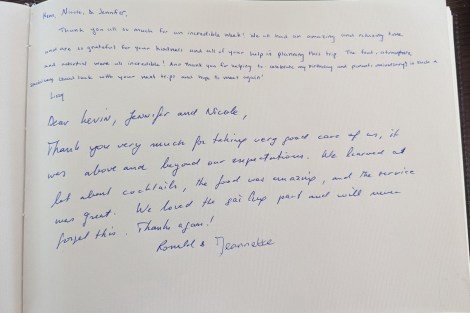 Kevin, Nicole, & Jennifer,
Thank you all so much for an incredible week! We all had an amazing and relaxing time
and are so grateful for your kindness and all of your help in planning this trip. The food, atmosphere
and activities were all incredible! And thank you for helping to celebrate my birthday and parents anniversary! in such a
way. Good luck with your next trips and hope to meet again!
Dear Kevin, Jennifer and Nicole,
Thank you very much for taking very good care of us, it
was above and beyond our expectations. We learned at
lot about cocktails, the food was amazing, and the service
was great. We loved the sailing part and will never
forget this. Thanks again!
Ronald & Jeannette